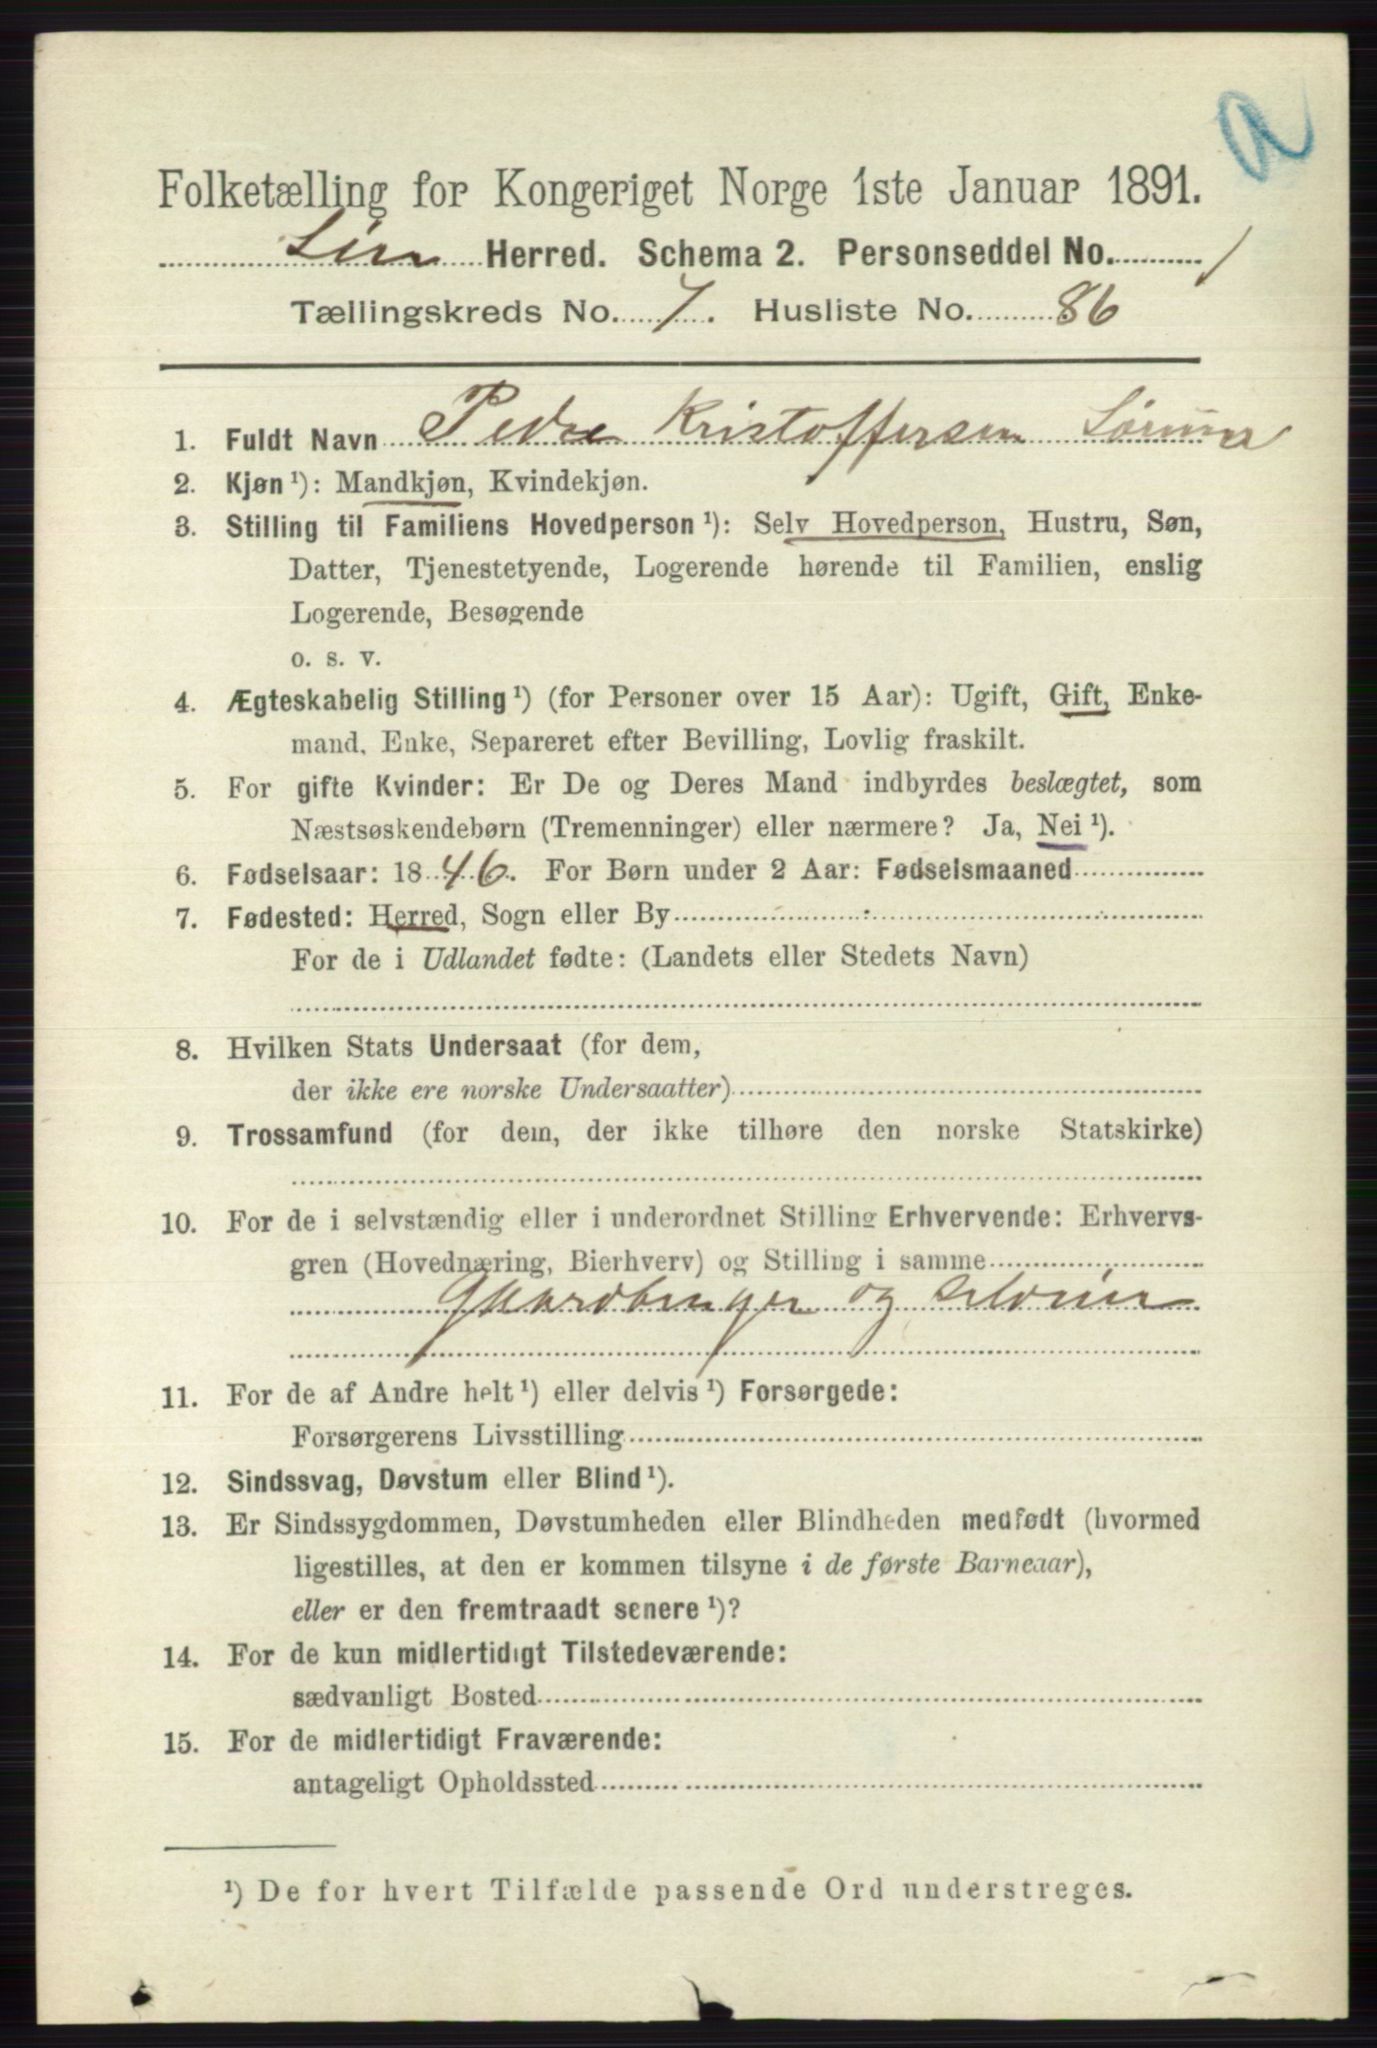 a
Folketælling for Kongeriget Norge 1ste Januar 1891.
Lier Herred. Schema 2. Personseddel No. 1
Tællingskreds No. 7. Husliste No. 86
1. Fuldt Navn Peder Kristoffersen
2. Kjøn ¹): Mandkjøn, Kvindekjøn.
3. Stilling til Familiens Hovedperson ¹): Selv Hovedperson, Hustru, Søn,
Datter, Tjenestetyende, Logerende hørende til Familien, enslig
Logerende, Besøgende
o. s. v.
4. Ægteskabelig Stilling ¹) (for Personer over 15 Aar): Ugift, Gift, Enke-
mand, Enke, Separeret efter Bevilling, Lovlig fraskilt.
5. For gifte Kvinder: Er De og Deres Mand indbyrdes beslægtet, som
Næstsøskendebørn (Tremenninger) eller nærmere? Ja, Nei ¹).
6. Fødselsaar: 1846. For Børn under 2 Aar: Fødselsmaaned
7. Fødested: Herred, Sogn eller By
For de i Udlandet fødte: (Landets eller Stedets Navn)
8. Hvilken Stats Undersaat (for dem,
der ikke ere norske Undersaatter)
9. Trossamfund (for dem, der ikke tilhøre den norske Statskirke)
10. For de i selvstændig eller i underordnet Stilling Erhvervende: Erhvervs-
gren (Hovednæring, Bierhverv) og Stilling i samme
Gaardbruger og selveier
11. For de af Andre helt ¹) eller delvis ¹) Forsørgede:
Forsørgerens Livsstilling
12. Sindssvag, Døvstum eller Blind ¹).
13. Er Sindssygdommen, Døvstumheden eller Blindheden medfødt (hvormed
ligestilles, at den er kommen tilsyne i de første Barneaar),
eller er den fremtraadt senere ¹)?
14. For de kun midlertidigt Tilstedeværende:
sædvanligt Bosted
15. For de midlertidigt Fraværende:
antageligt Opholdssted
¹) De for hvert Tilfælde passende Ord understreges.